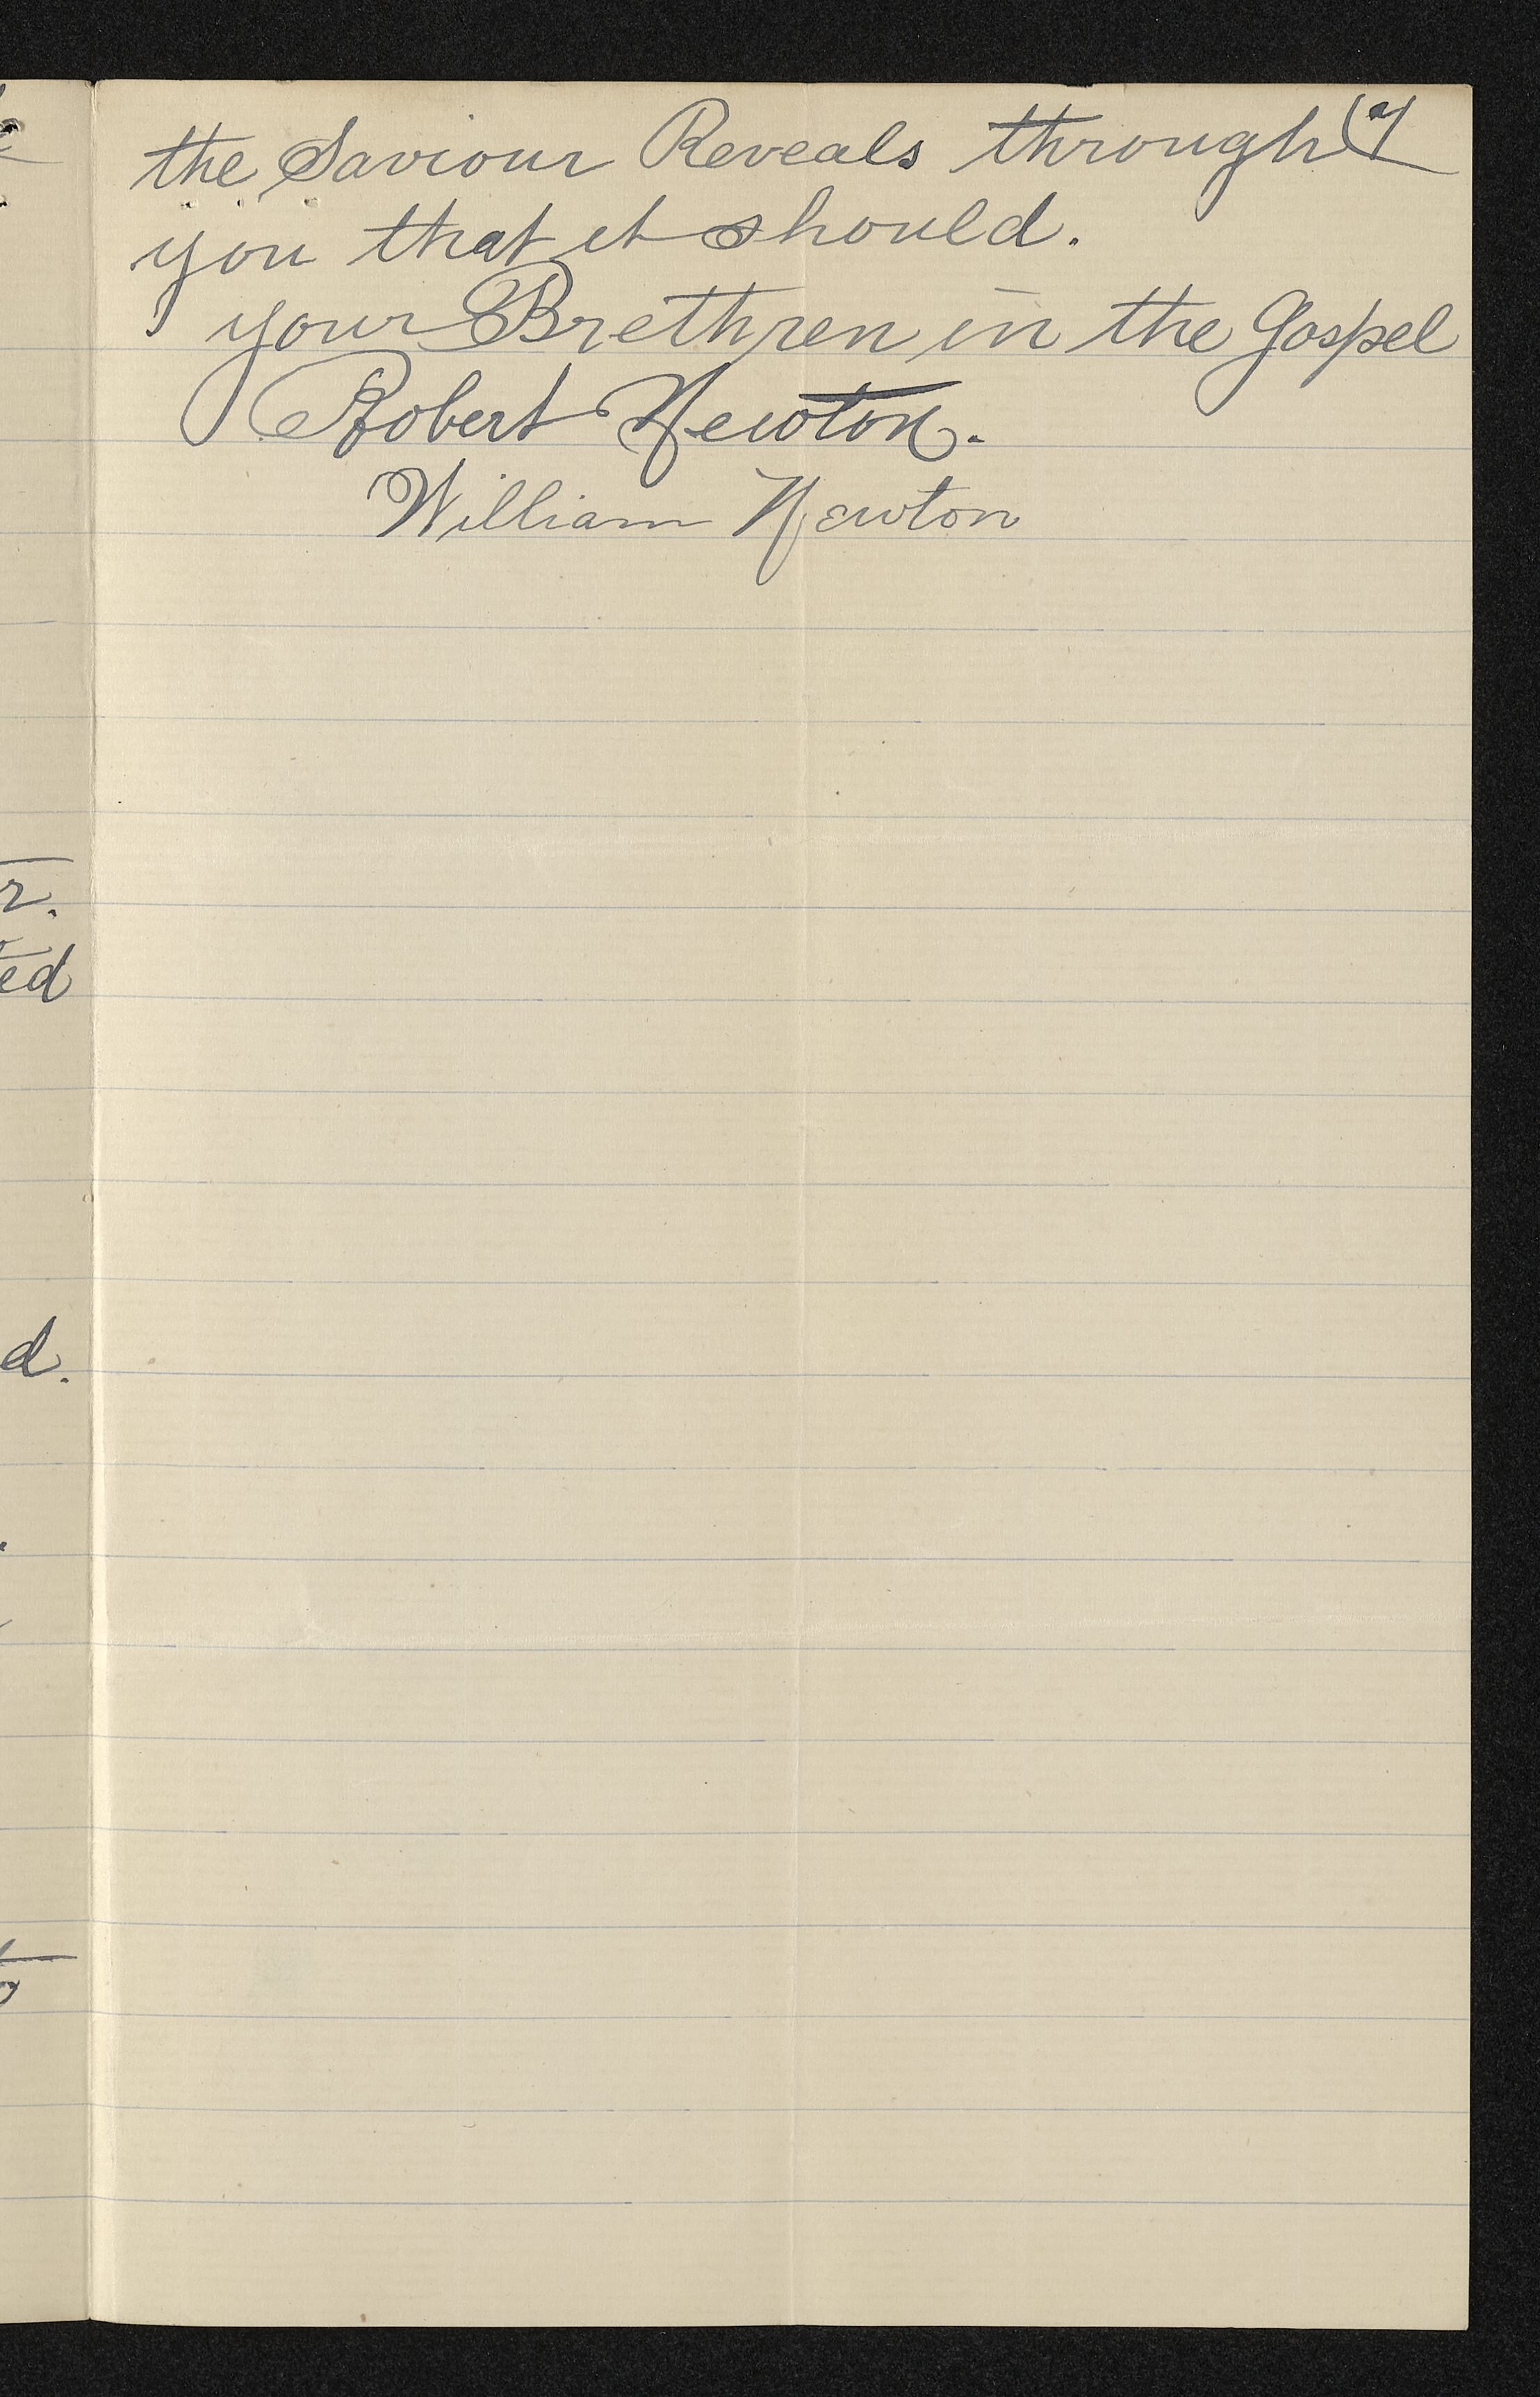 the Saviour Reveals through
you that it should.
your Brethren in the Gospel
Robert Newton.
William Newton
r.
ed
d.